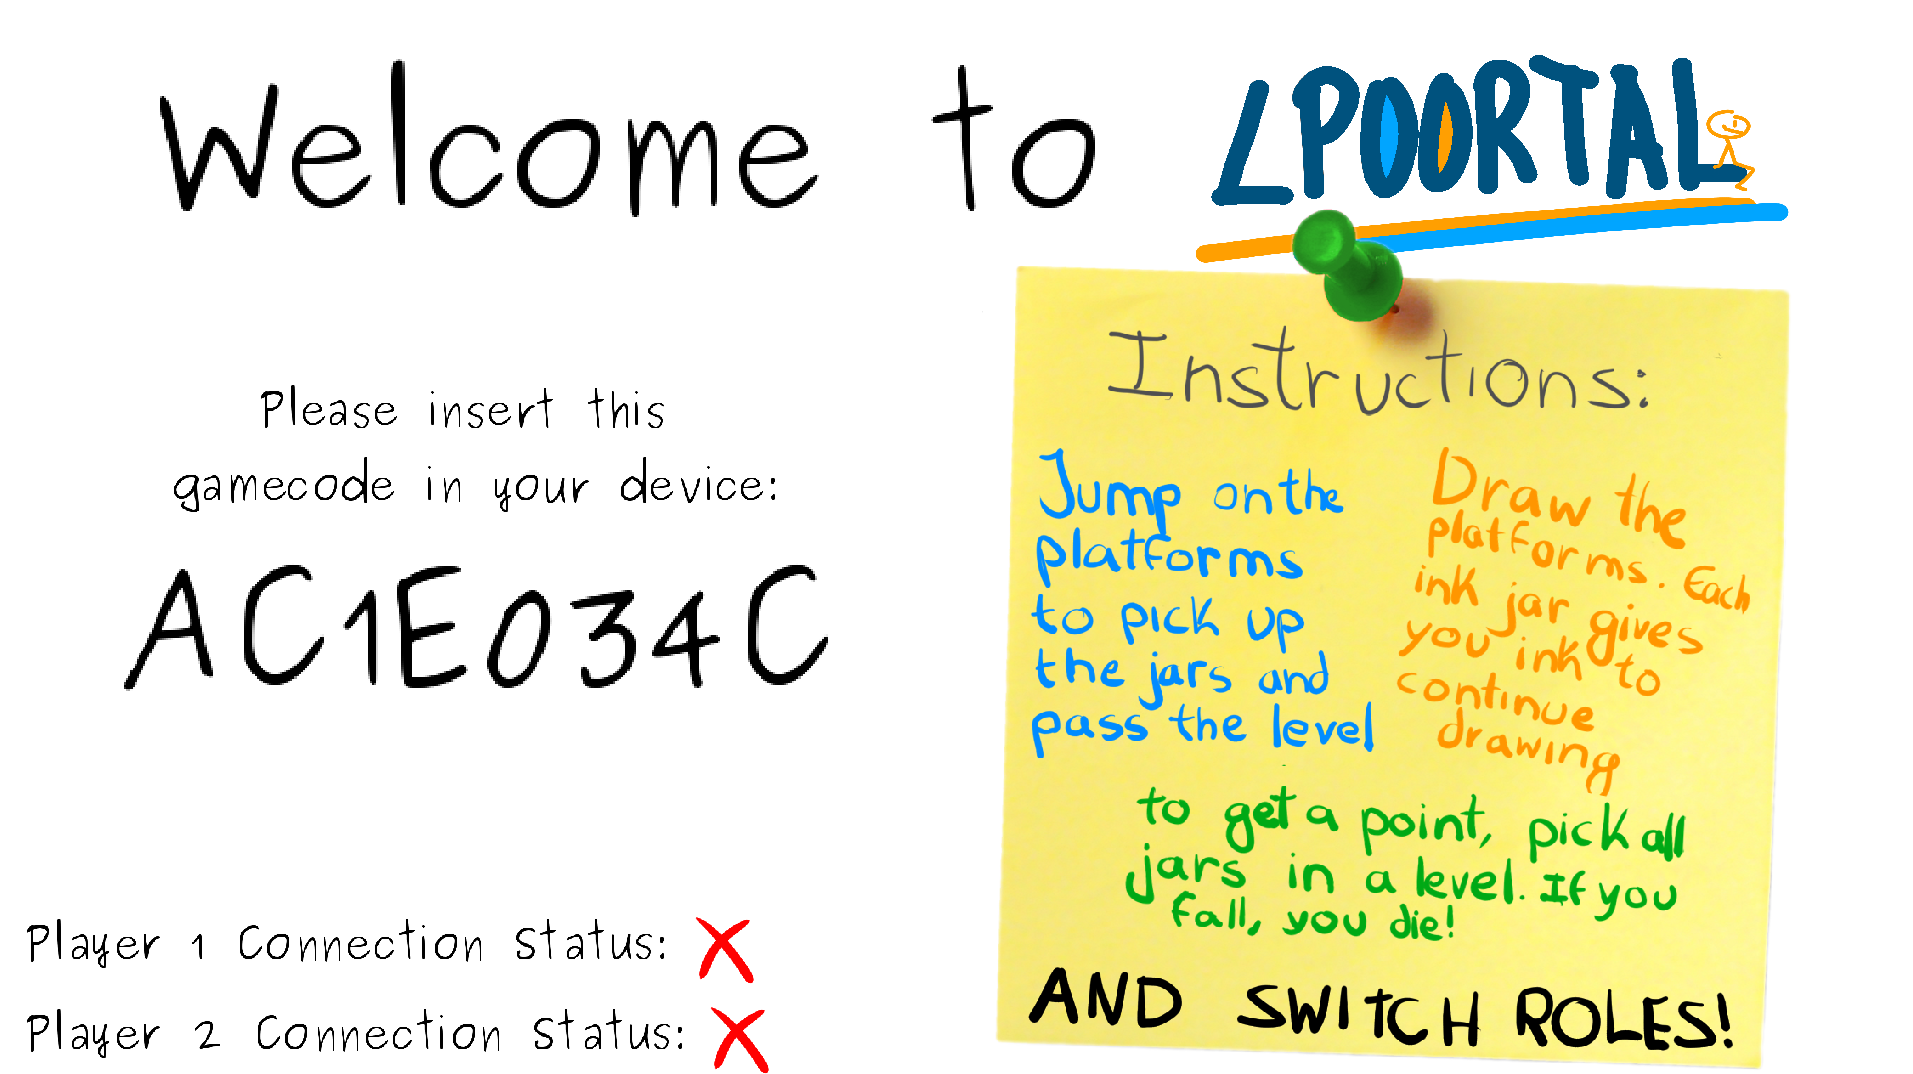 Welcome to LPOORTAL
Please insert this
gamecode in your device:
AC1E034C
Player 1 Connection Status:
Player 2 Connection Status:
Instructions:
Jump on the
platforms
to pick up
the jars and
pass the level
Draw the
platforms. Each
ink jar gives
you ink to
continue
drawing
to get a point, pick all
jars in a level. If you
fall, you die!
AND SWITCH ROLES!